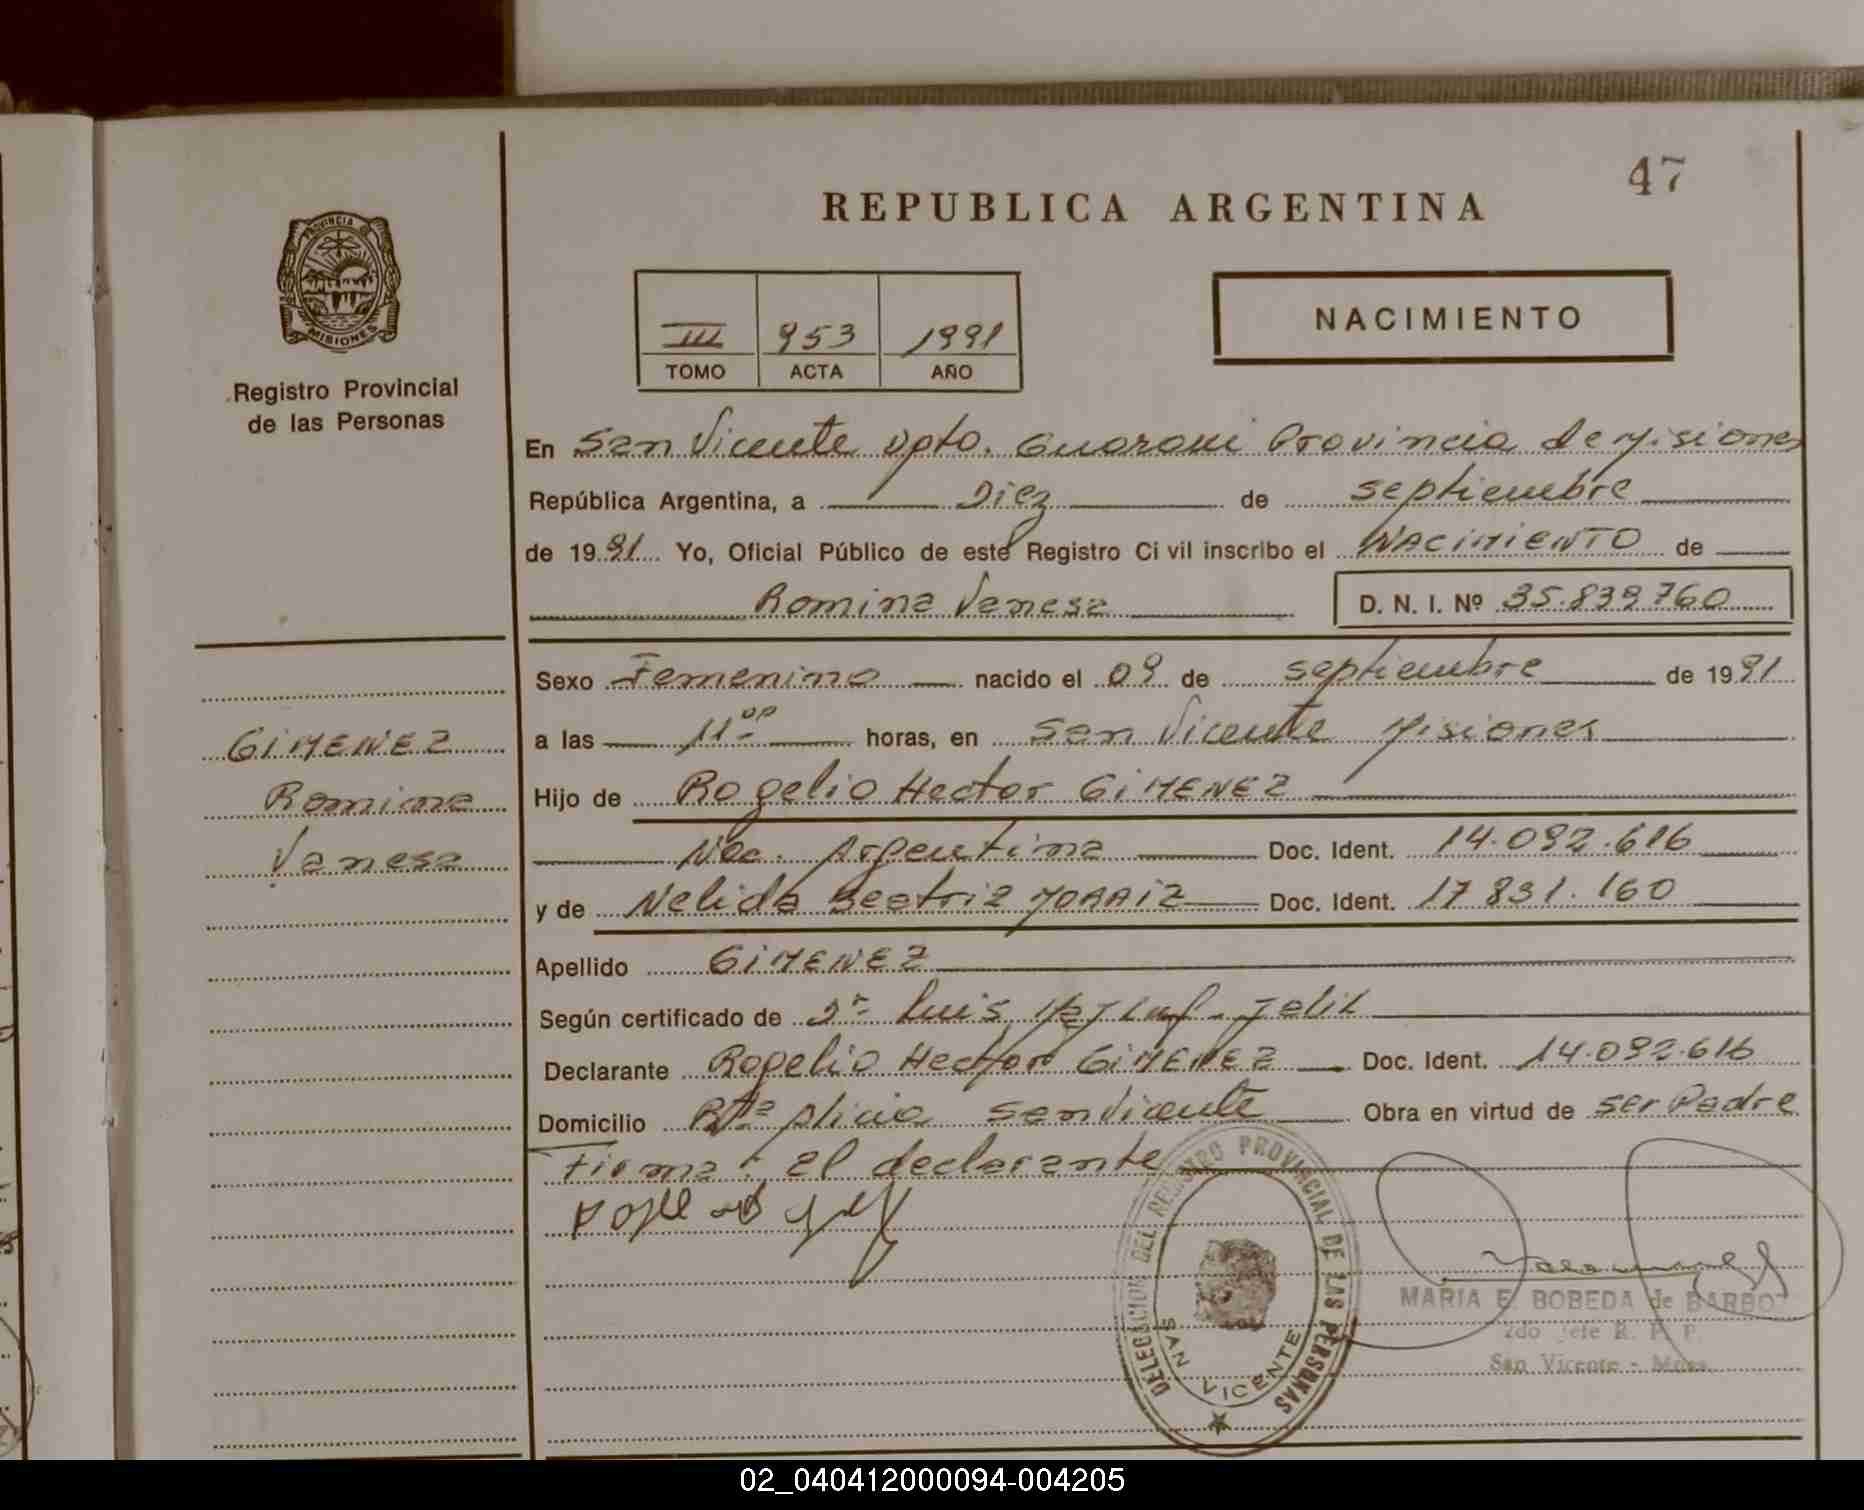 47
REPUBLICA ARGENTINA
PROVINCIA DE MISIONES
Registro Provincial
de las Personas
III 953 1991
TOMO ACTA AÑO
NACIMIENTO
En San Vicente Dpto. Guarani Provincia de Misiones
República Argentina, a Diez de septiembre
de 1991 Yo, Oficial Público de este Registro Civil inscribo el NACIMIENTO de
Romina Vanesa D. N. I. Nº 35.839.760
Sexo Femenino nacido el 09 de septiembre de 1991
a las 11 horas, en San Vicente Misiones
Hijo de Rogelio Hector GIMENEZ
Nac. Argentina Doc. Ident. 14.092.616
y de Nelida Beatriz Doc. Ident. 17 831.160
Apellido GIMENEZ
Según certificado de Luis
Declarante Rogelio Hector GIMENEZ Doc. Ident. 14.092.616
Domicilio San Vicente Obra en virtud de ser Padre
Firma: el declarante
GIMENEZ
Romina
Vanesa
DELEGACION DEL REGISTRO PROVINCIAL DE LAS PERSONAS
SAN VICENTE
MARIA E. BOBEDA de BARBO
2do Jefe R. P. P.
San Vicente - Mnes.
02_040412000094-004205